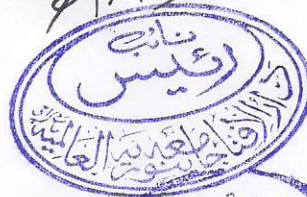 نائب
رئیس
دارالافتاء جامعہ بنوریہ العالمیہ